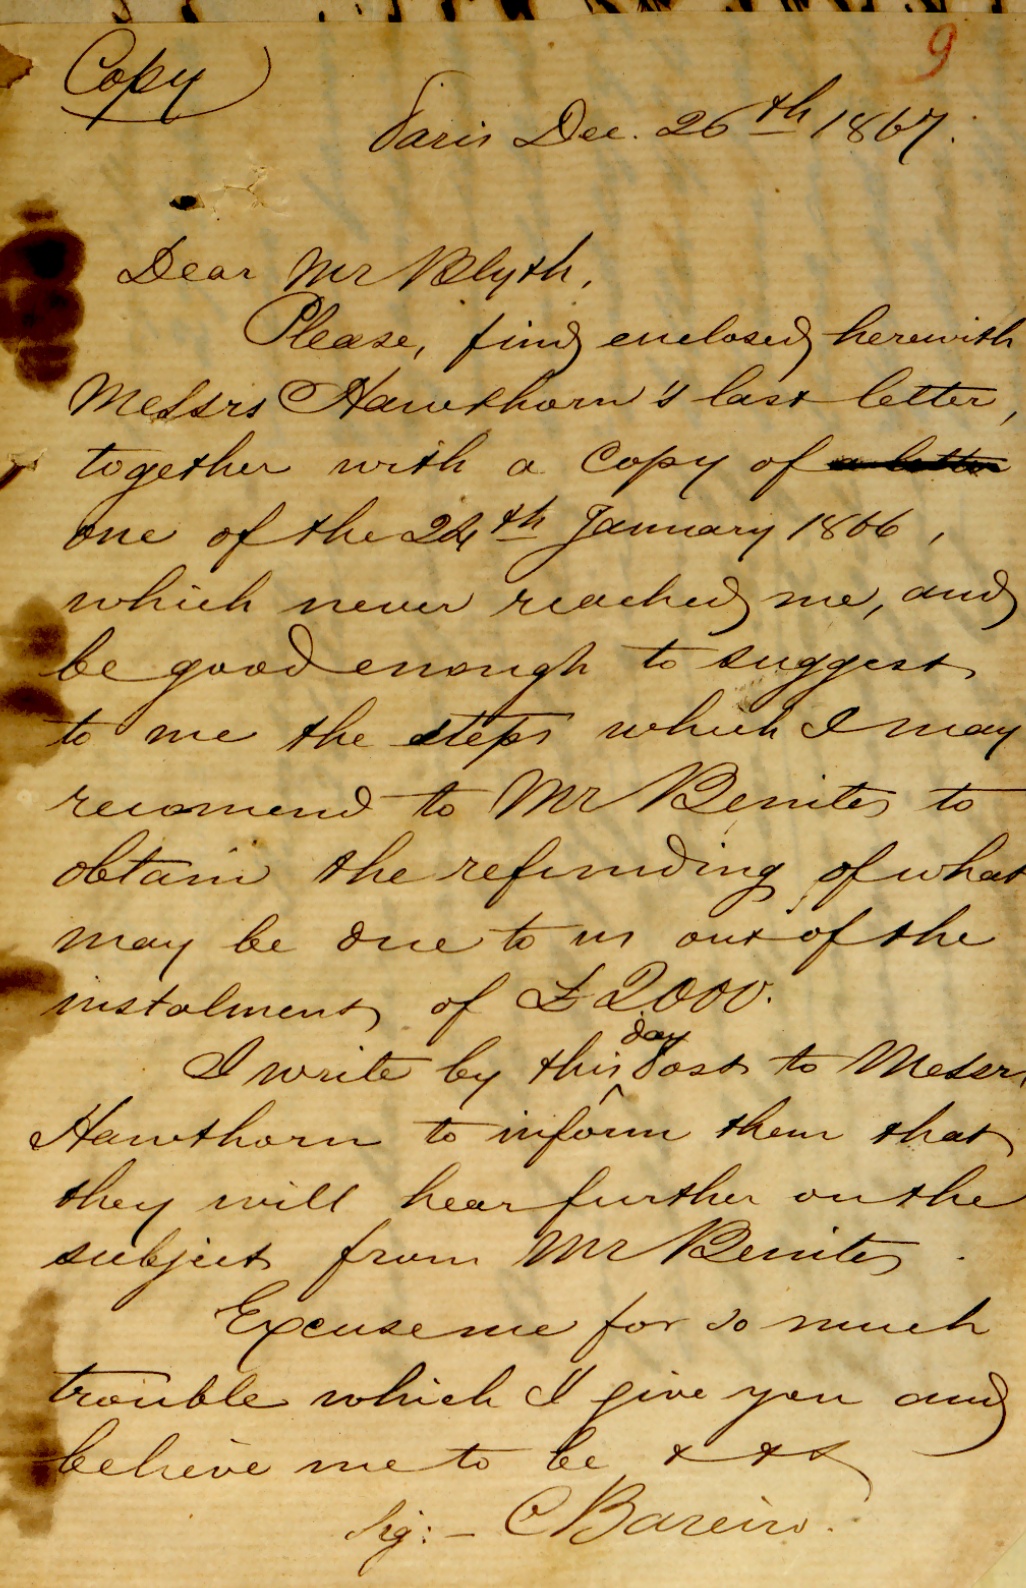 9
Copy
Paris Dec. 26th 1867.
Dear Mr Blyth,
Please, find enclosed herewith
Messrs Hawthorn's last letter,
together with a copy of a letter
one of the 24th January 1866,
which never reached me, and
be good enough to suggest
to me the steps which I may
recomend to Mr Benites to
obtain the refunding of what
may be due to us out of the
instalment of £2000.
I write by this day post to Messrs
Hawthorn to inform them that
they will hear further on the
subject from Mr Benites.
Excuse me for so much
trouble which I give you and
believe me to be & & &
Sig: - C Bareiro.